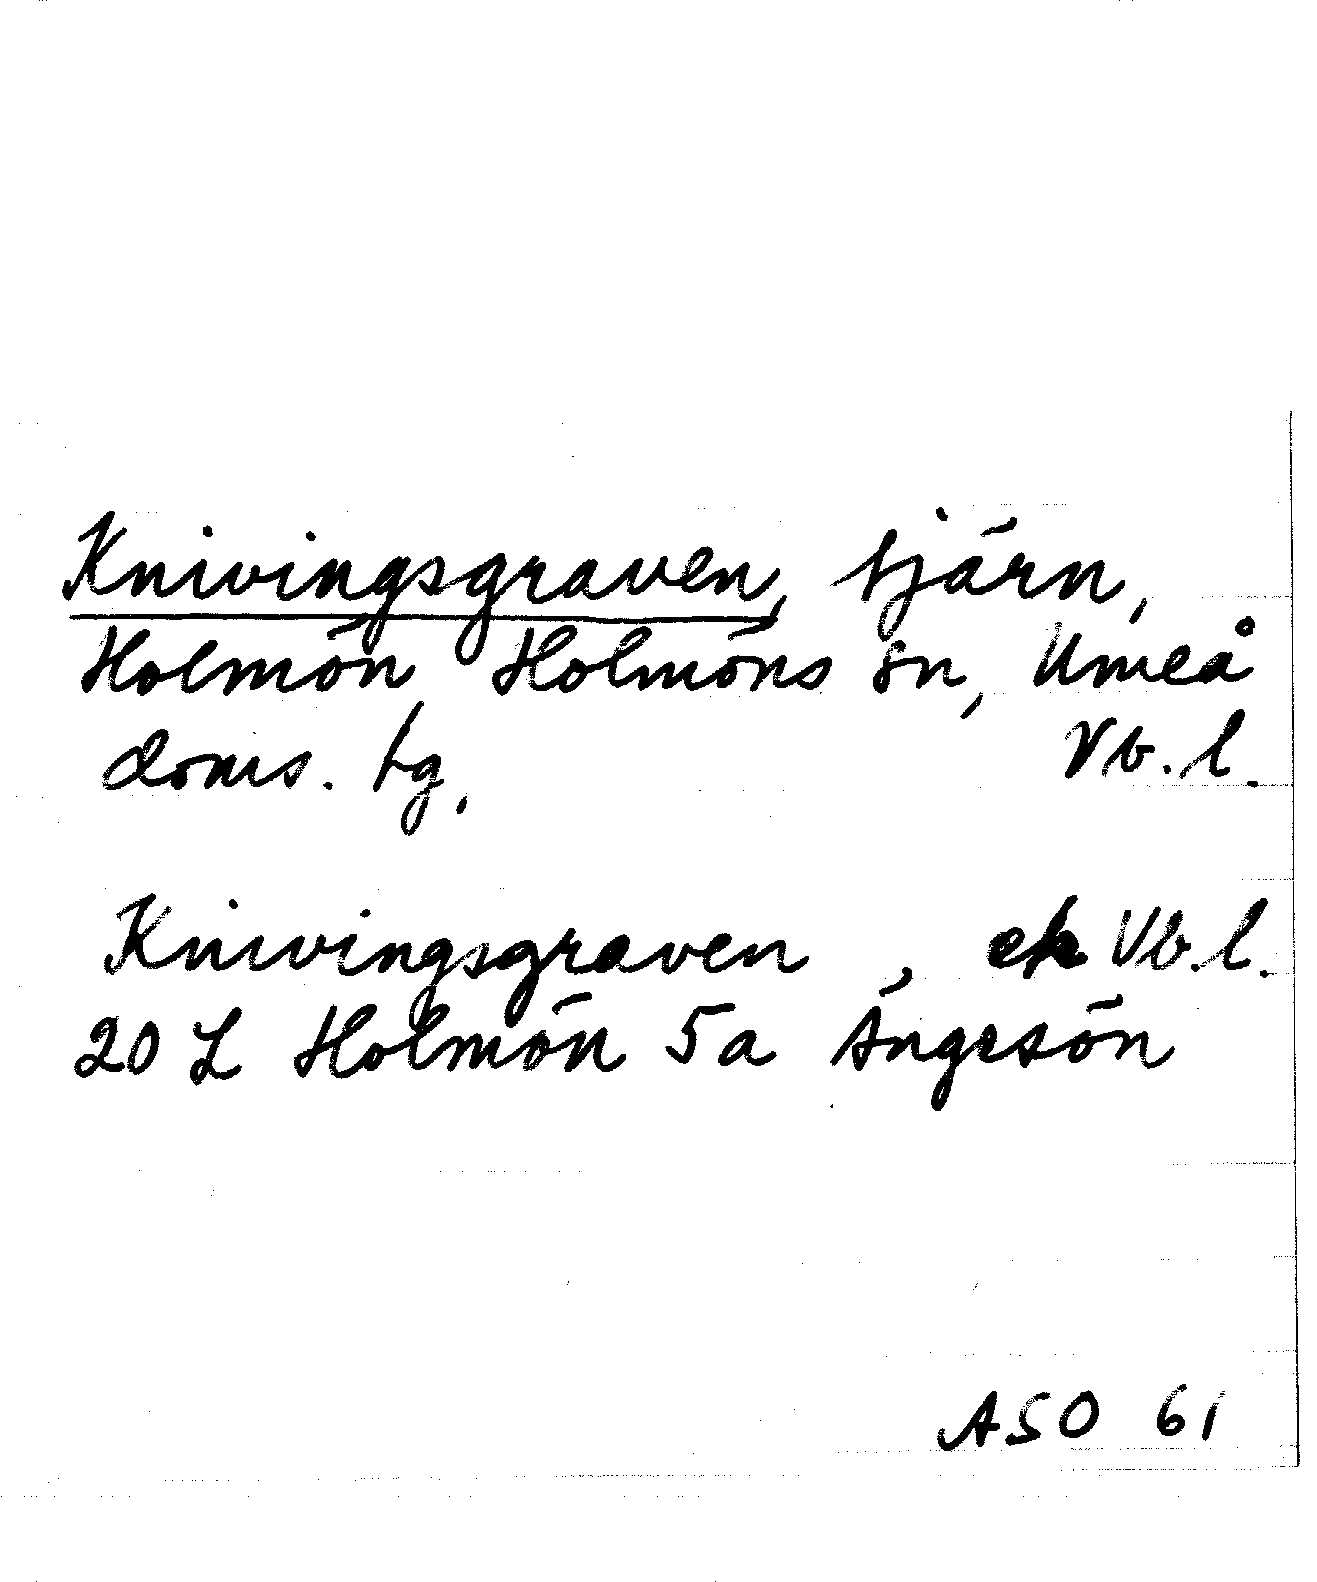 Knivingsgraven, tjärn,
Holmön, Holmöns sn, Umeå
doms. tg, Vb. l.
Knivingsgraven, ek Vb. l.
20 L Holmön 5a Ängesön
ASO 61